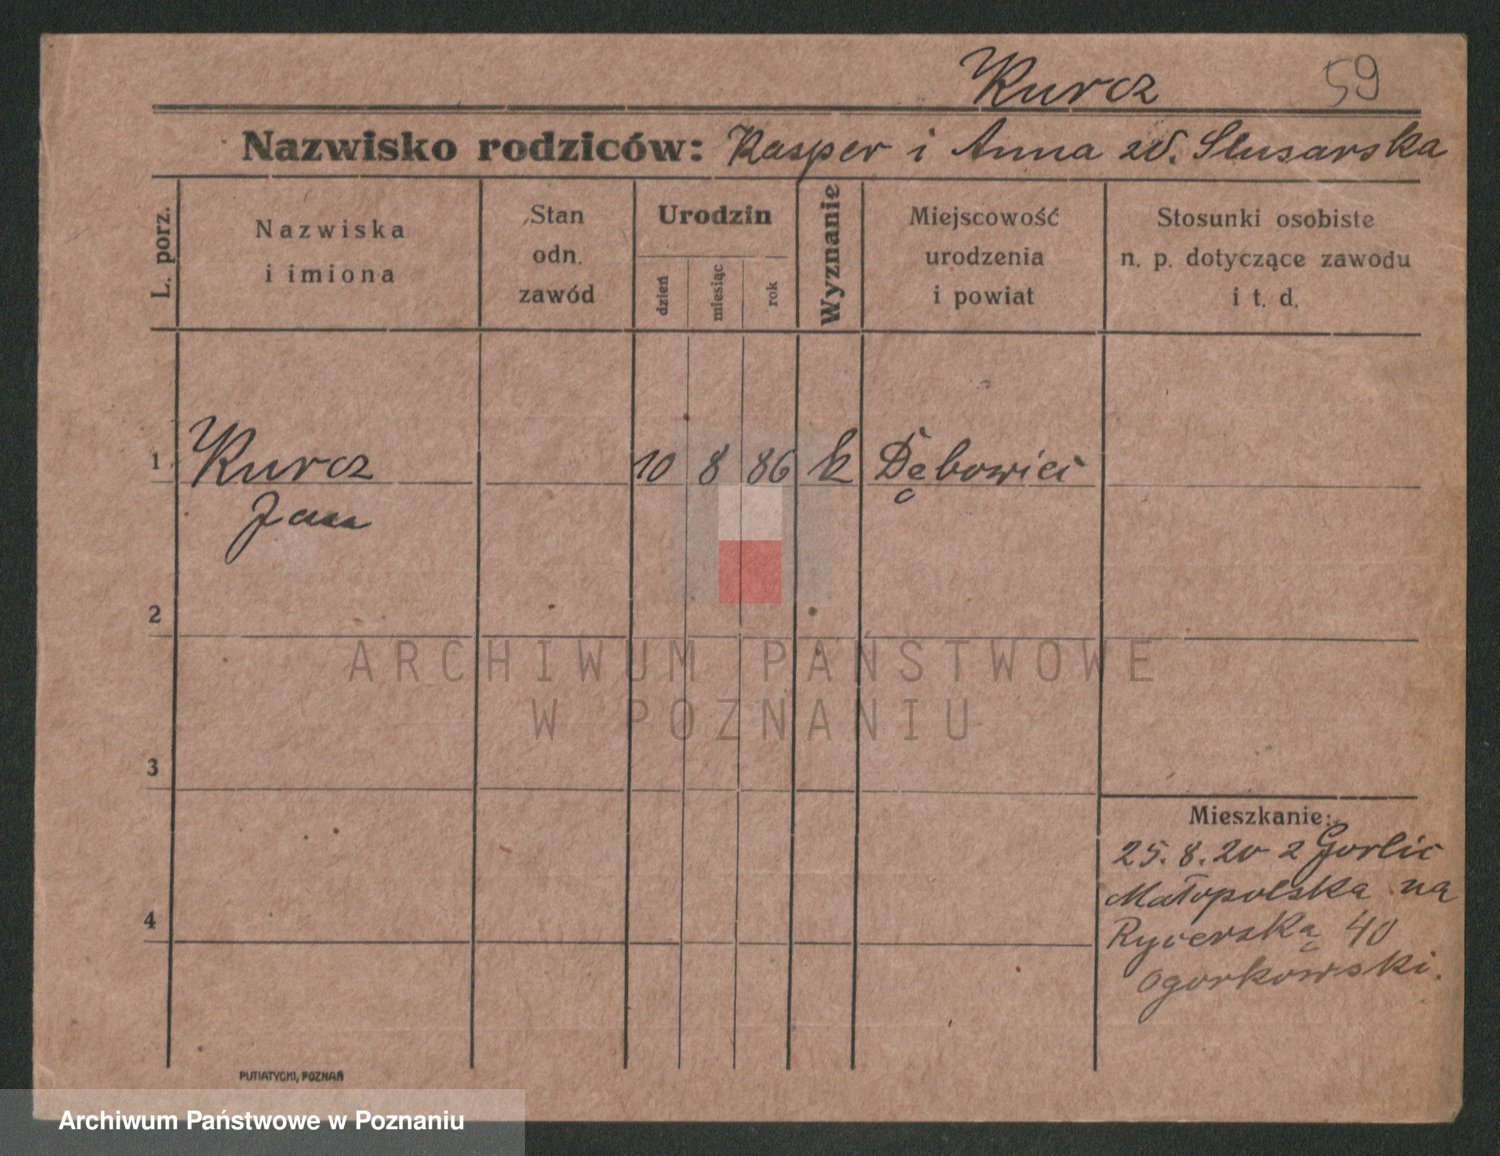 Kurcz 59
Nazwisko rodziców: Kasper i Anna zd. Slusarska
L. porz.
Nazwiska
i imiona
Stan
odn.
zawód
Urodzin
dzień
miesiąc
rok
Wyznanie
Miejscowość
urodzenia
i powiat
Stosunki osobiste
n. p. dotyczące zawodu
i t. d.
1 Kurcz 10 8 86 k Dębowici
Jan
2
ARCHIWUM PAŃSTWOWE
W POZNANIU
3
Mieszkanie:
25.8.20 z Gorlic
Małopolska na
Rycerską 40
Ogorkowski.
4
PUTIATYCKI, POZNAŃ
Archiwum Państwowe w Poznaniu